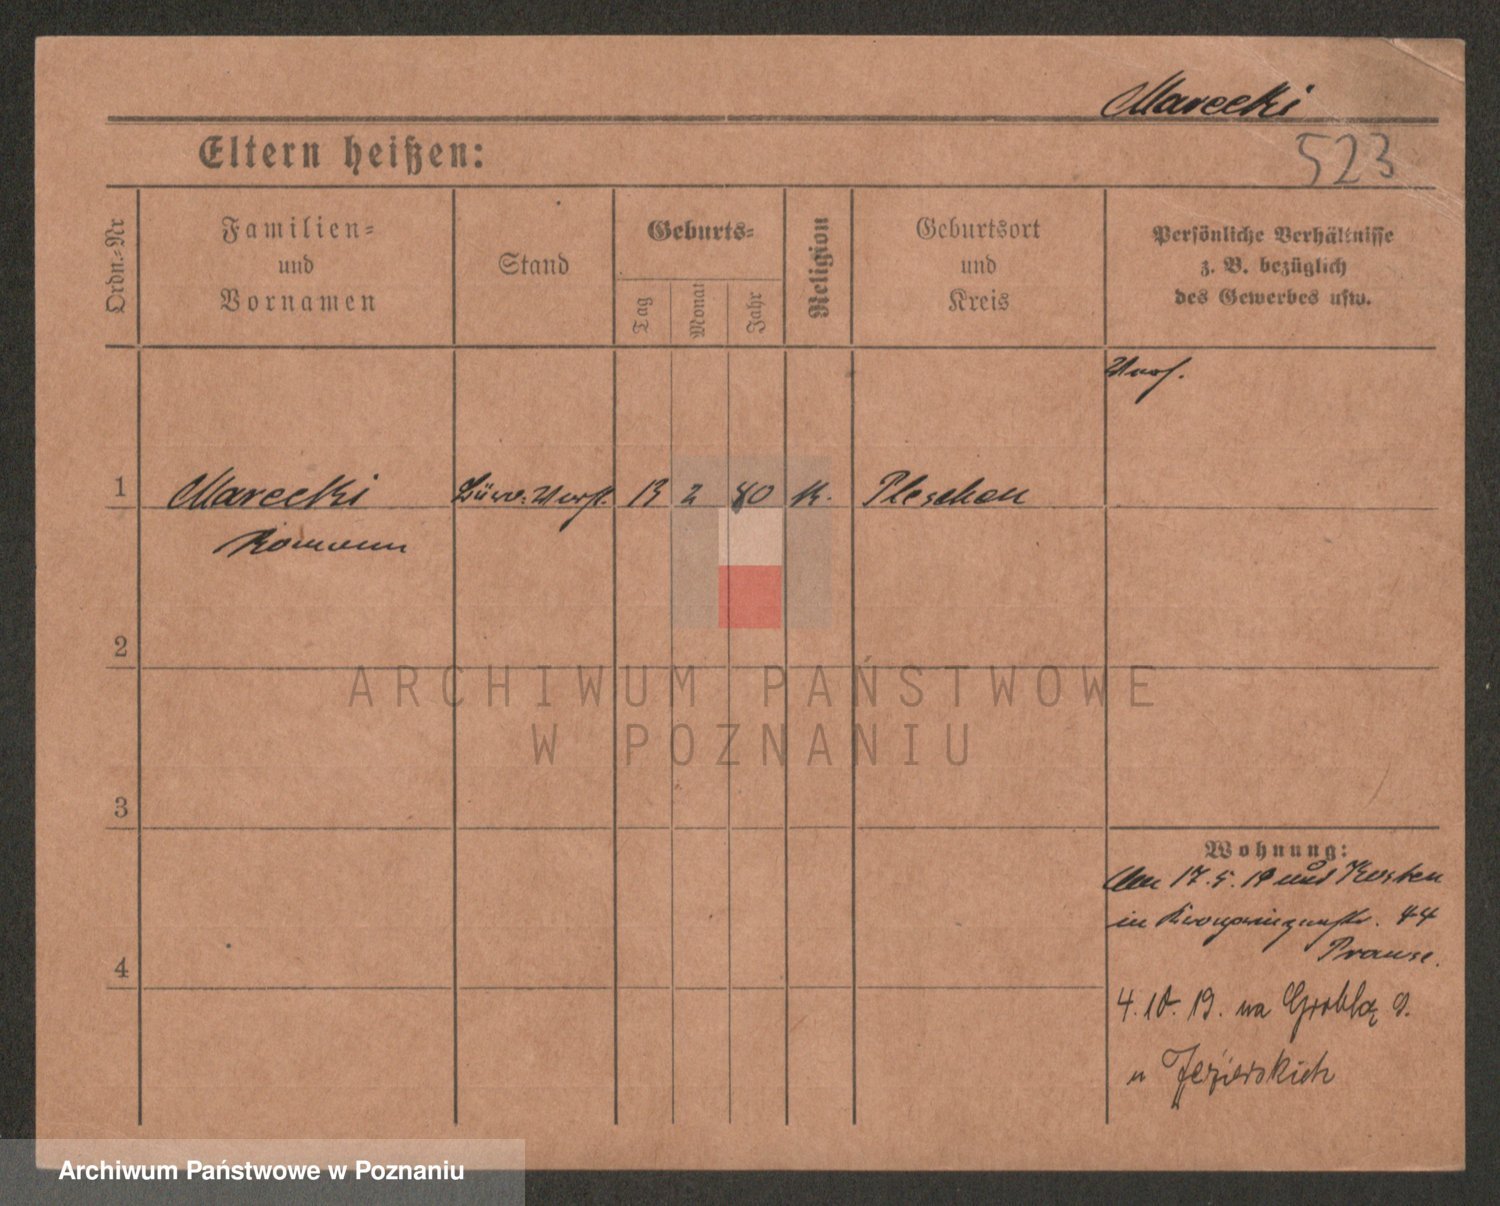 Marecki
Eltern heißen:
523
Ordn.-Nr
Familien-
und
Vornamen
Stand
Geburts-
Tag
Monat
Jahr
Religion
Geburtsort
und
Kreis
Persönliche Verhältnisse
z. B. bezüglich
des Gewerbes usw.
1
Marecki
13
2
80
k.
Pleschen
Romann
2
ARCHIWUM PAŃSTWOWE
W POZNANIU
3
Wohnung:
17. 5. 19 Kosten
in Kronprinzenstr. 44
Prause.
4
4. 10. 19. na Groblą 9.
u Jezierskich
Archiwum Państwowe w Poznaniu